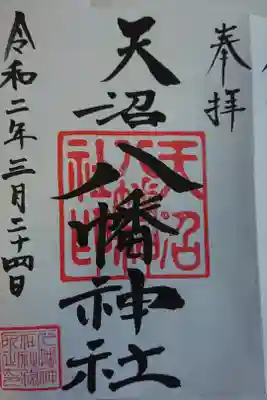 奉拝
天沼八幡神社
天沼八幡社印
令和二年三月二十四日